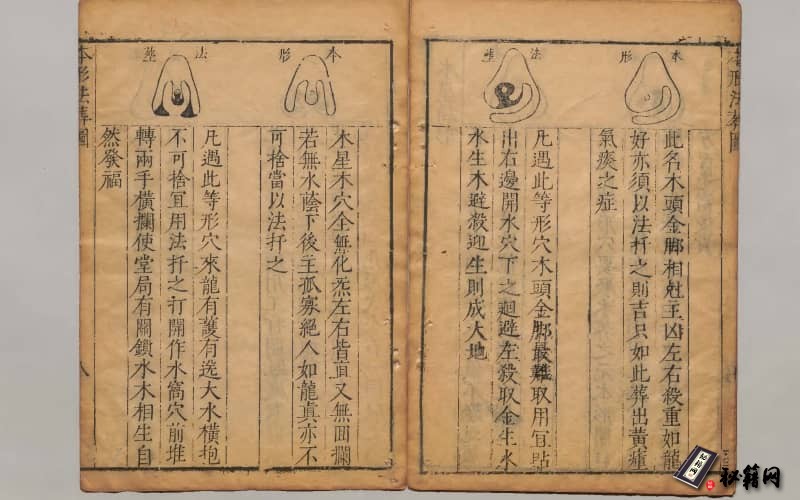 本形法葬圖
本形
此名木頭金脚相尅主凶左右殺重如龍
好亦須以法扦之則吉只如此葬出黃瘇
氣痪之症
法塟
凡遇此等形穴木頭金脚最難取用宜點
出右邊開水穴下之廻避左殺取金生水
水生木避殺迎生則成大地
本形
木星木穴全無化炁左右皆直又無囬攔
若無水蔭下後主孤寡絕人如龍真亦不
可捨當以法扦之
法塟
凡遇此等形穴來龍有護有送大水橫抱
不可捨宜用法扦之打開作水窩穴前堆
轉兩手橫攔使堂局有關鎖水木相生自
然發福
本形法葬圖
八
秘籍网